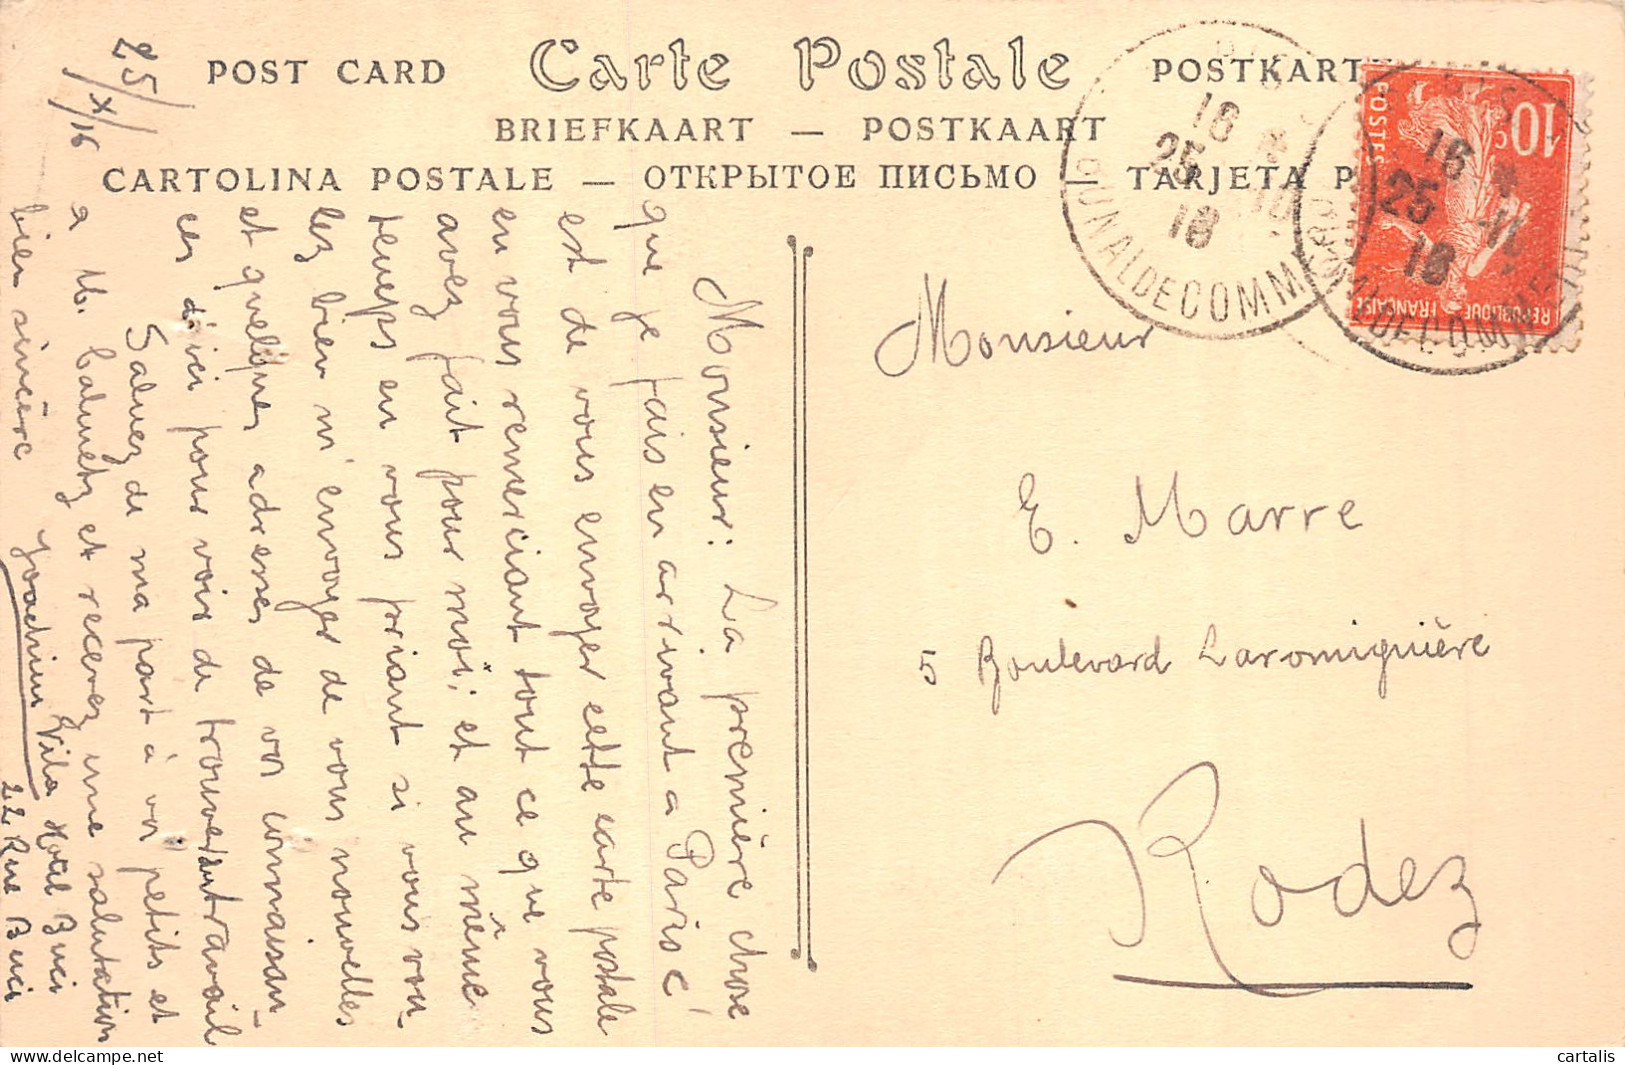 POST CARD Carte Postale POSTKARTE
BRIEFKAART — POSTKAART
CARTOLINA POSTALE — ОТКРЫТОЕ ПИСЬМО — TARJETA P
25/X/16
Monsieur: La première chose
que je fais en arrivant a Paris c'
est de vous envoyer cette carte postale
en vous remerciant tout ce que vous
avez fait pour moi; et au même
temps en vous priant si vous vou-
lez bien m'envoyer de vous nouvelles
et quelques adresses de vos connaissan-
ces d'ici pour voir de trouver du travail
Saluez de ma part à vos petits et
a M. Calmetz et recevez une salutation
bien sincère Joachim Vila Hotel Buci
22 Rue Buci
Monsieur
E. Marre
5 Boulevard Laromiguière
Rodez
16
25 10
16
DU TRIBUNAL DE COMMERCE
16
25
16
DE COMMERCE
10c
POSTES
REPUBLIQUE FRANÇAISE
cartalis